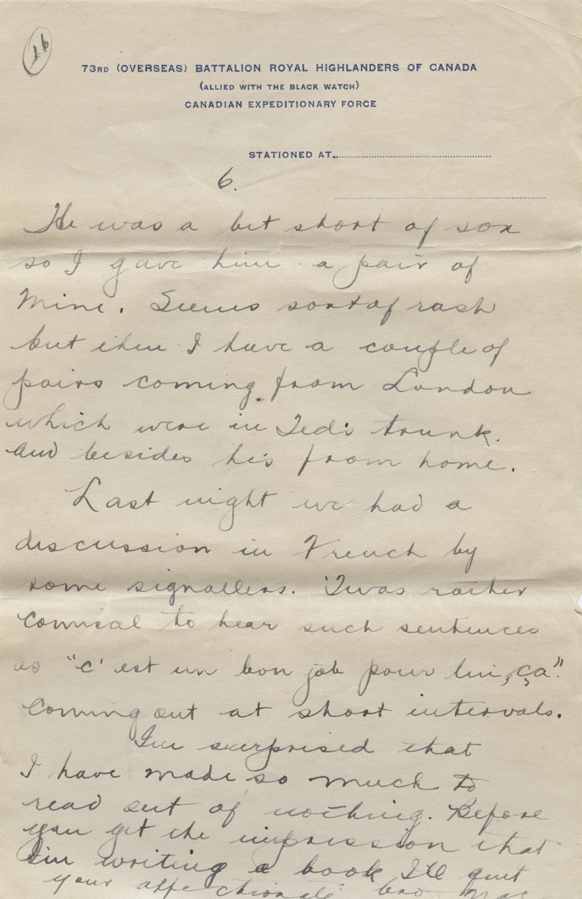 16
73RD (OVERSEAS) BATTALION ROYAL HIGHLANDERS OF CANADA
(ALLIED WITH THE BLACK WATCH)
CANADIAN EXPEDITIONARY FORCE
STATIONED AT
6.
He was a bit short of sox
so I gave him a pair of
mine. Seems sort of rash
but then I have a couple of
pairs coming from London
which were in Ted's trunk.
and besides he's from home.
Last night we had a
discussion in French by
some signallers. 'Twas rather
comical to hear such sentences
as "c'est un bon job pour lui, ça".
coming out at short intervals.
I'm surprised that
I have made so much to
read out of nothing. Before
you get the impression that
I'm writing a book I'll quit
your affectionate bro. Mac